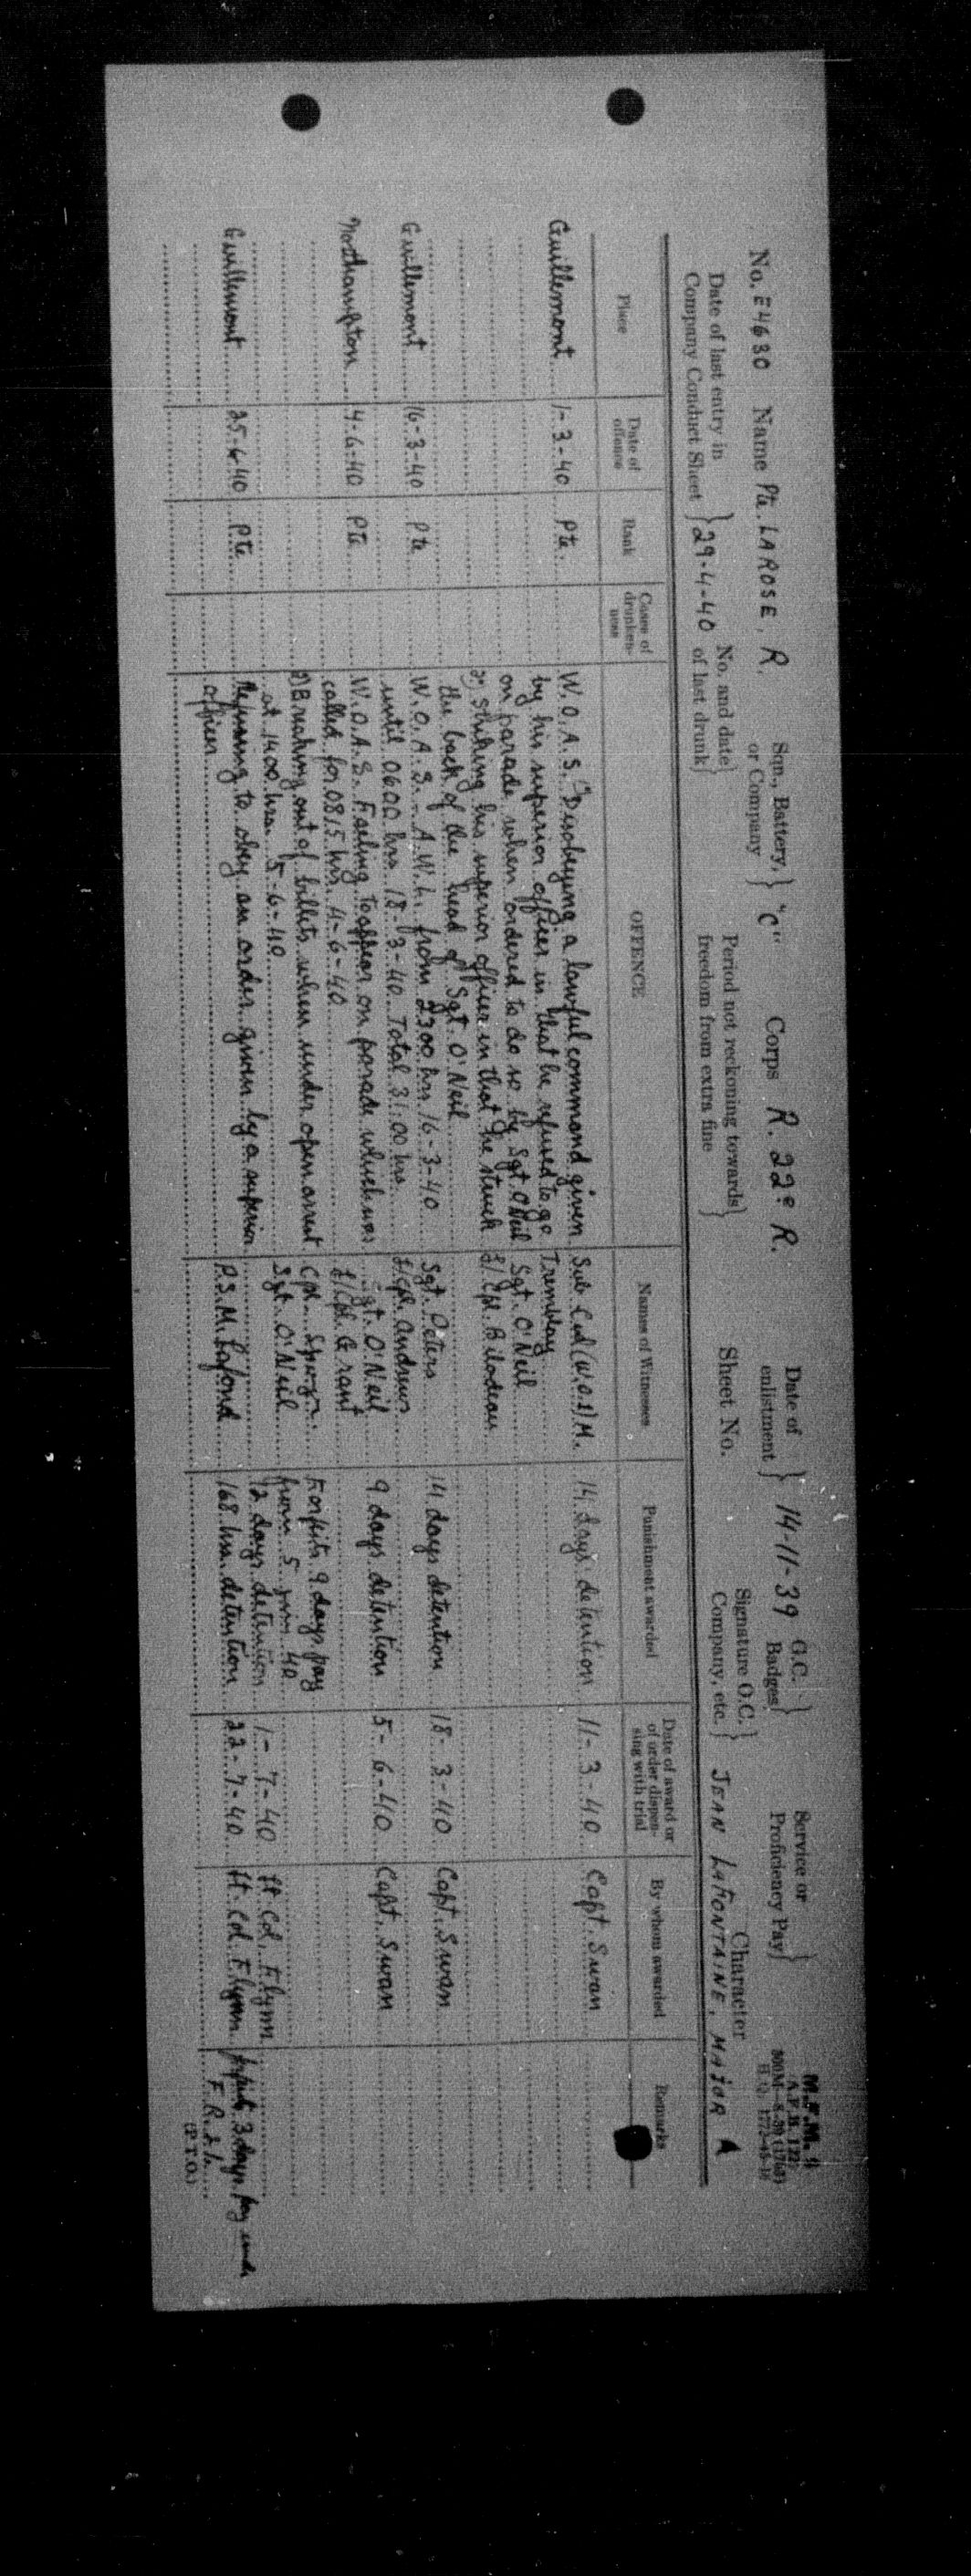 M.F.M. 6
A.F.B. 122
800M—8-39 (1768)
H.Q. 1772-45-16
No. E4630 Name Pte. LAROSE, R. Sqn., Battery, or Company } "C" Corps R. 22e R. Date of enlistment } 14-11-39 G.C. Badges } Service or Proficiency Pay }
Date of last entry in Company Conduct Sheet } 29-4-40 No. and date of last drunk } Period not reckoning towards freedom from extra fine } Sheet No. Signature O.C. Company, etc. } JEAN LAFONTAINE, MAJOR Character
Place Date of offence Rank Cases of drunkenness OFFENCE Names of Witnesses Punishment awarded Date of award or of order dispensing with trial By whom awarded Remarks
Guillemont 1-3-40 Pte. W.O.A.S. Disobeying a lawful command given Sub Cnd (W.O.1) M. 14 days detention 11-3-40 Capt. Swan
by his superior officer in that he refused to go Tremblay
on parade when ordered to do so by Sgt. O'Neil Sgt. O'Neil
2) Striking his superior officer in that he struck L/Cpl. Bilodeau
the back of the head of Sgt. O'Neil
Guillemont 16-3-40 Pte W.O.A.S. A.W.L. from 2300 hrs 16-3-40 Sgt. Peters 14 days detention 18-3-40 Capt. Swan
until 0600 hrs 18-3-40 Total 31.00 hrs L/Cpl. Andrews
Northampton 4-6-40 Pte W.O.A.S. Failing to appear on parade which was Sgt. O'Neil 9 days detention 5-6-40 Capt. Swan
called for 0815 hrs. 4-6-40 L/Cpl. Grant
2) Breaking out of billets when under open arrest Cpl. Forfeits 9 days pay
at 1400 hrs. 5-6-40 Sgt. O'Neil from 5 jun 40
12 days detention 1-7-40 Lt Col. Flynn
Guillemont 25-6-40 Pte. Refusing to obey an order given by a superior R.S.M. Lafond 168 hrs. detention 22-7-40 Lt. Col. Flynn forfeits 3 days pay under
officer
(P.T.O.)